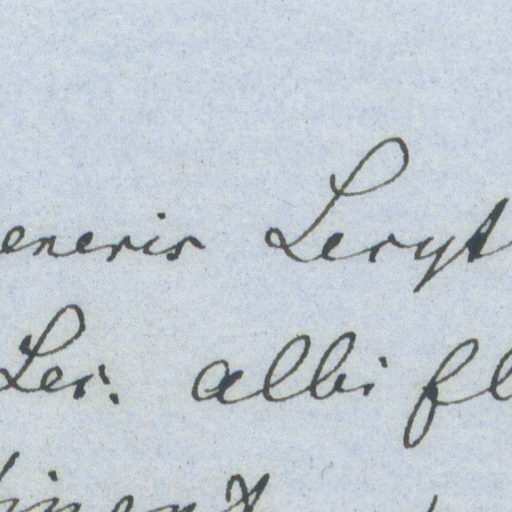 eneris Lecyt
Lec. albi fl